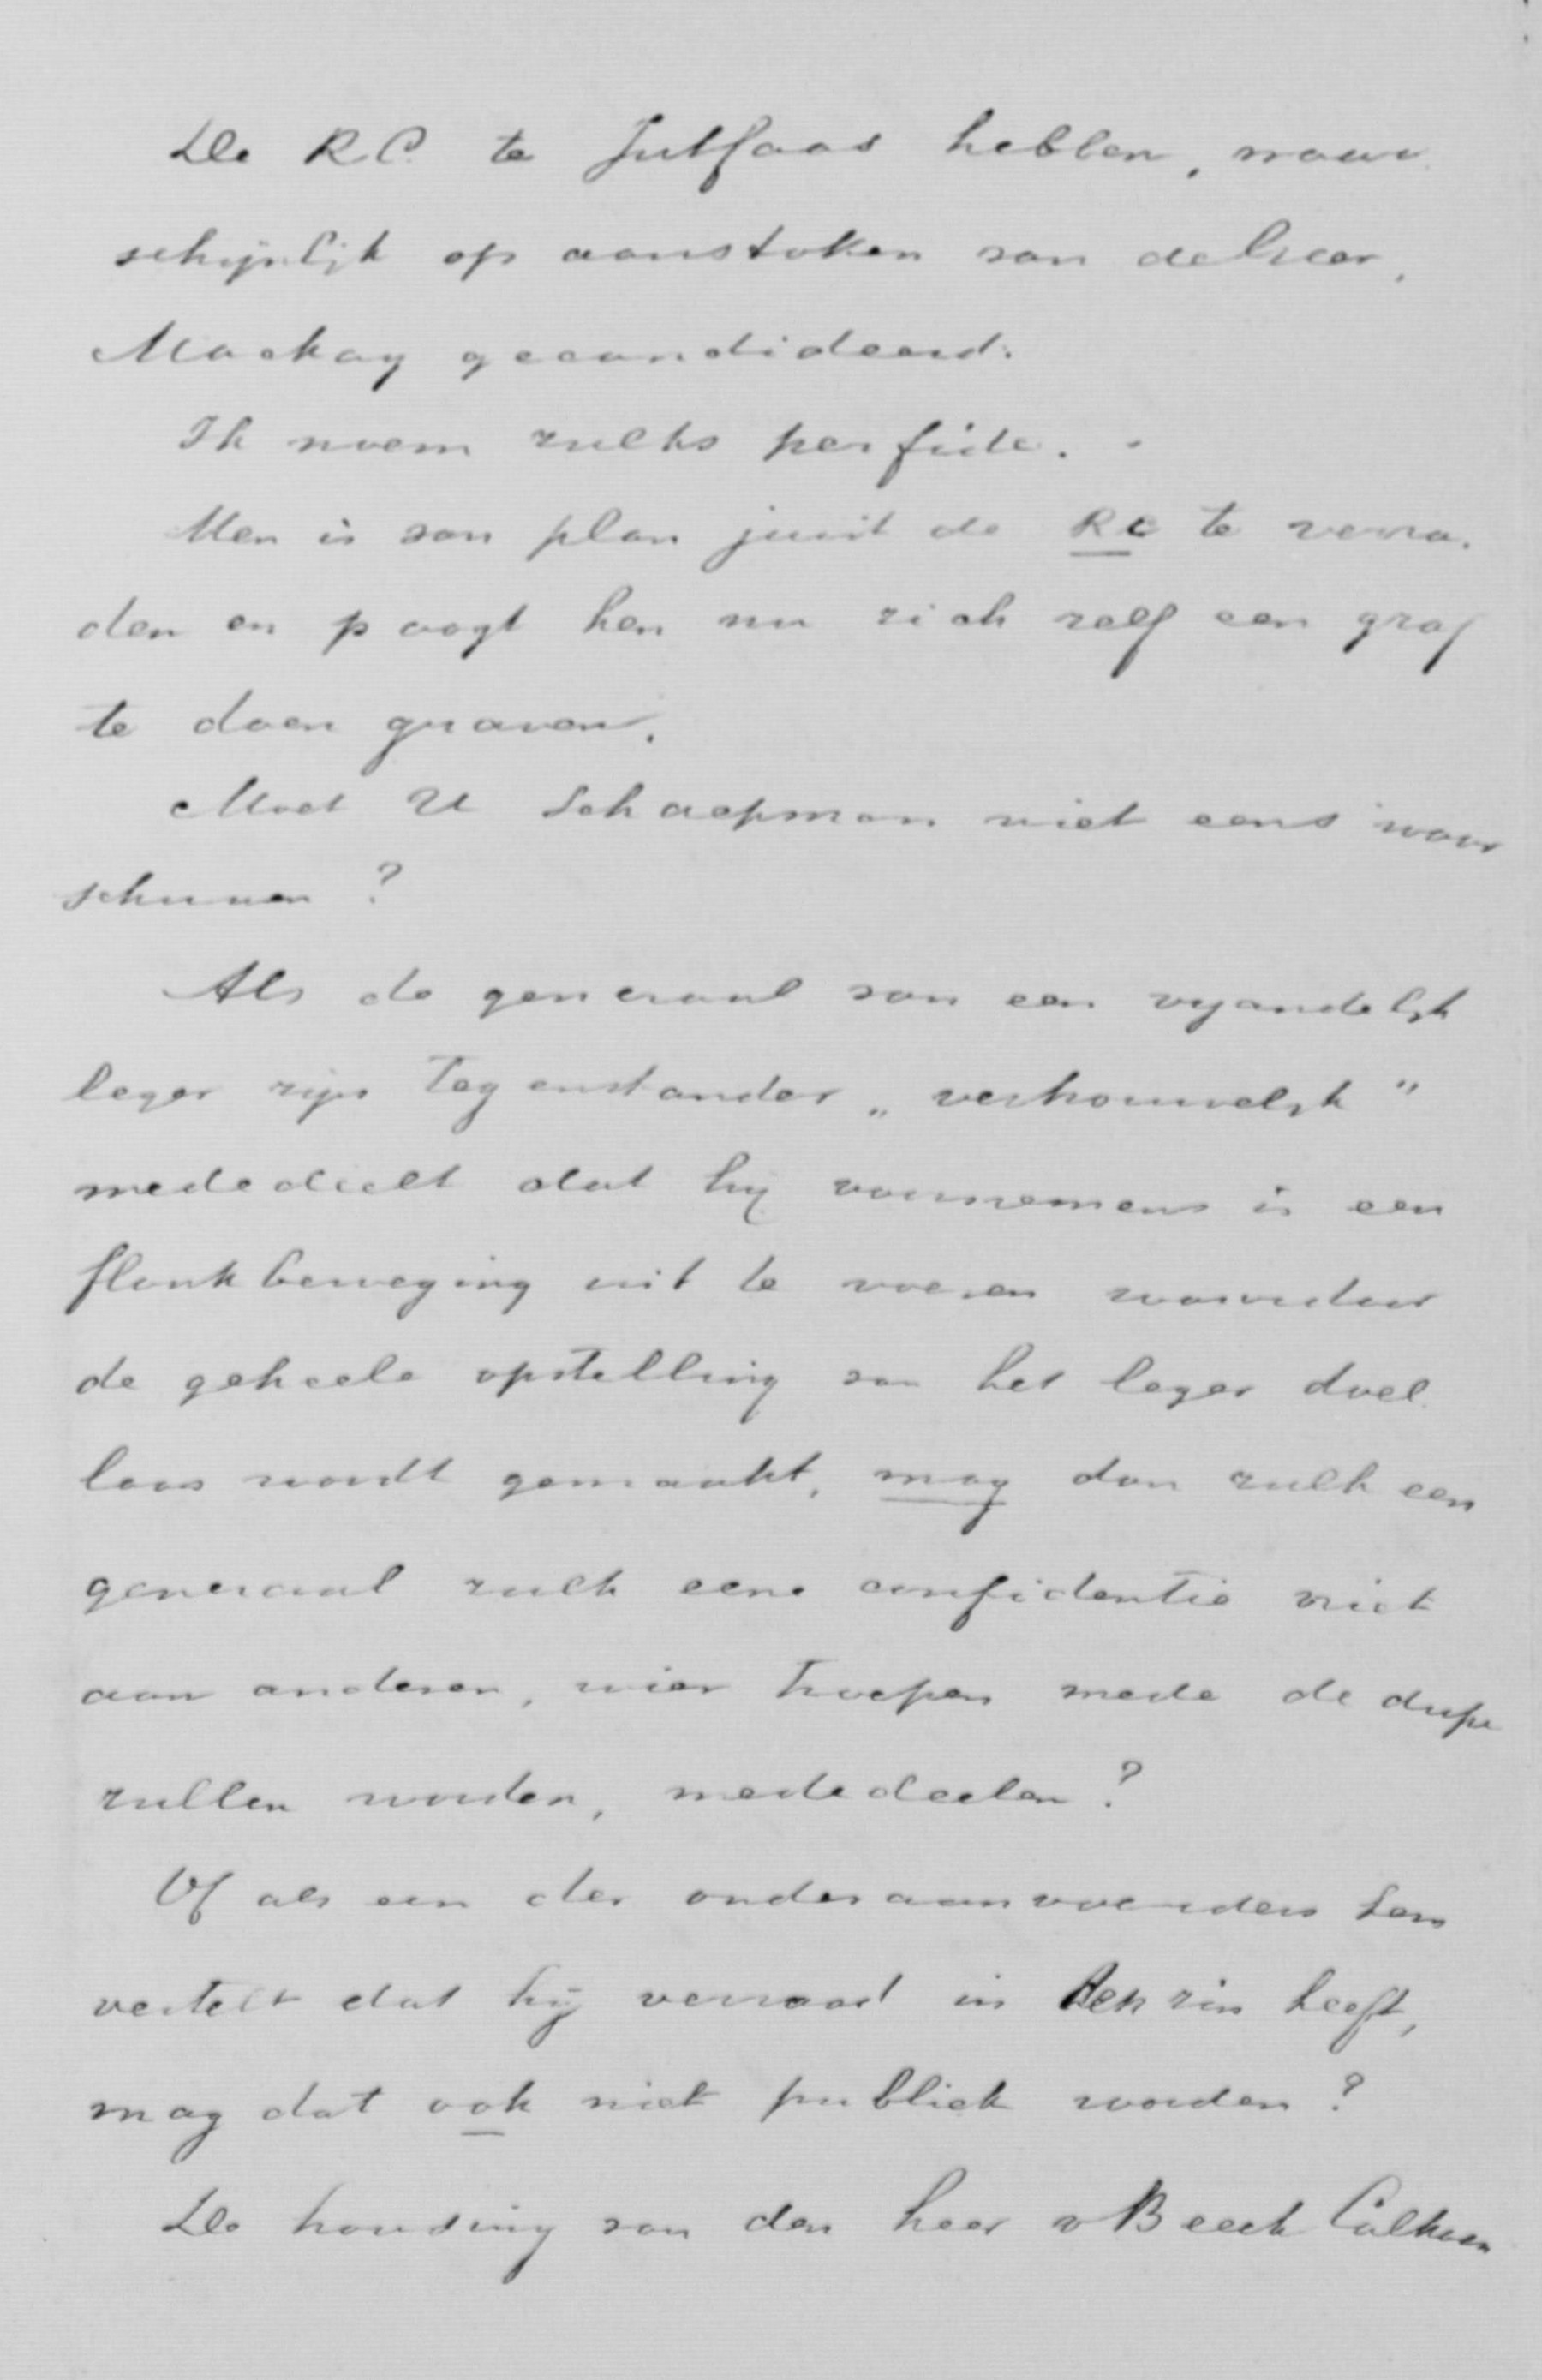 De R.C. te Jutfaas hebben, waar
schijnlijk op aanstoken van de heer,
Mackay gecandideerd.
Ik noem zulks perfide.
Men is van plan juist de RC te verra.
den en poogt hen nu zich zelf een graf
te doen graven.
Moet U Schaepman niet eens waar
schuwen ?
Als de generaal van een vijandelijk
leger zijn tegenstander „ vertrouwelijk "
mededeelt dat hij voornemens is een
flankbeweging uit te voeren waardoor
de geheele opstelling van het leger doel
loos wordt gemaakt, mag dan zulk een
generaal zulk eene confidentie niet
aan anderen, wier troepen mede de dupe
zullen worden, mededeelen ?
Of als een der onderaanvoerders hem
vertelt dat hij verraad in den zin heeft,
mag dat ook niet publiek worden ?
De houding van den heer v Beeck Calkoen